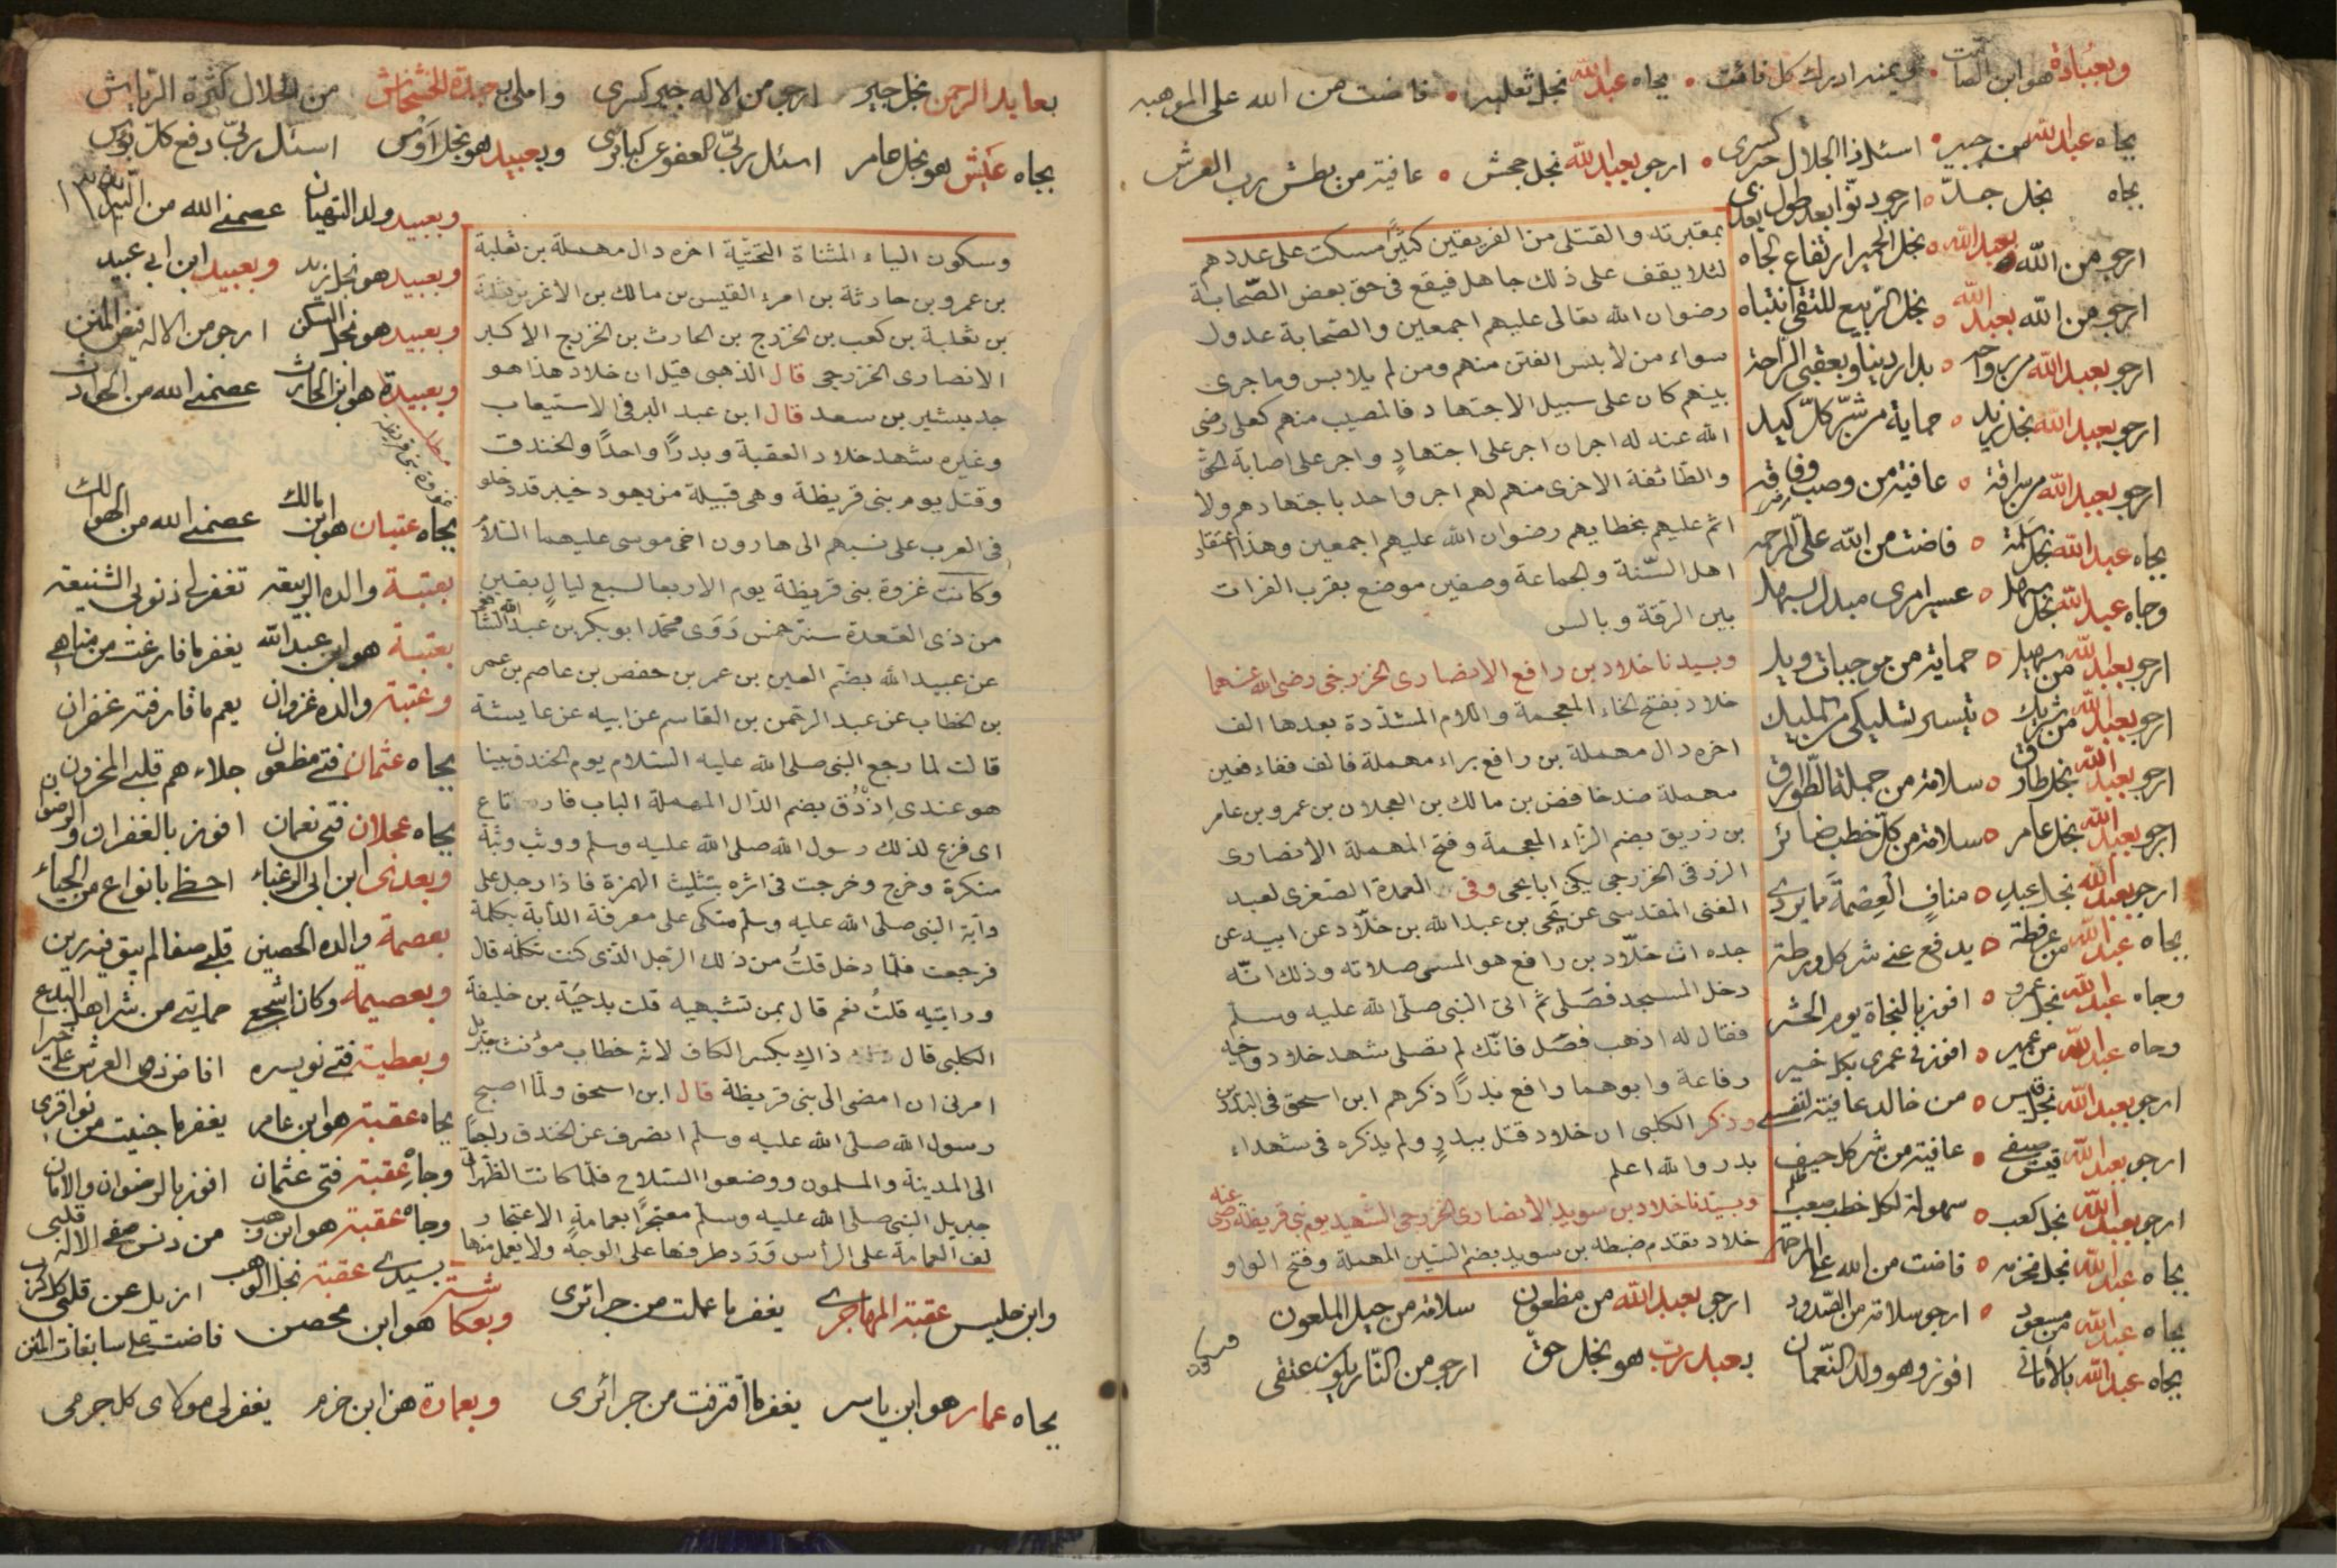 وبعبادة هو ابن الصامت وعند ادرك كل فائت بجاه عبد الله نجل ثعلبه فاضت من الله على الموهبه
بجاه عبد الله من جبير اسئل ذا الجلال جبر كسرى ارجو بعبد الله نجل جحش عافية من بطش رب العرش
بجاه نجل جد ارجو ثوابا بعد طول بعدى
ارجو من الله بعبد الله نجل الحمير ارتفاع الجاه
ارجو من الله بعبد الله نجل الربيع للتقى انتباه
ارجو بعبد الله من رواحه بدار دنيا وبعقبى الراحة
ارجو بعبد الله نجل زيد حماية من شر كل كيد
ارجو بعبد الله من سراقة عافية من وصب وفاقه
بجاه عبد الله نجل سلمة فاضت من الله على المرحمه
وجاه عبد الله نجل سهل عسير امرى مبدل بسهل
ارجو بعبد الله من سهيل حماية من موجبات ويل
ارجو بعبد الله من شريك تيسر تسليكى من المليك
ارجو بعبد الله نجل طارق سلامة من جملة الطوارق
ارجو بعبد الله نجل عامر سلامة من كل خطب ضائر
ارجو بعبد الله نجل عبد مناف العصمة مما يردى
بجاه عبد الله من عرفطة يدفع عنى شر كل ورطة
وجاه عبد الله نجل عمرو افوز بالنجاة يوم الحشر
وجاه عبد الله من عمير افوز فى عمرى بكل خير
ارجو بعبد الله نجل قيس من خالد عافية لنفسى
ارجو بعبد الله قيس صيفى عافية من شر كل حيف
ارجو بعبد الله نجل كعب سهولة لكل خطب صعب
بجاه عبد الله نجل مخرمه فاضت من الله على المرحمه
بجاه عبد الله من مسعود ارجو سلامة من الصدود ارجو بعبد الله من مظعون سلامة من حيل الملعون
بجاه عبد الله بالامانى افوز وهو ولد النعمان بعبد رب هو نجل حق ارجو من النار يكون عتقى
بمقبرته والقتلى من الفريقين كثير امسكت على عددهم
لئلا يقف على ذلك جاهل فيقع فى حق بعض الصحابة
رضوان الله تعالى عليهم اجمعين والصحابة عدول
سواء من لابس الفتن منهم ومن لم يلابس وما جرى
بينهم كان على سبيل الاجتهاد فالمصيب منهم كعلى رضى
الله عنه له اجران اجر على اجتهاد واجر على اصابة الحق
والطائفة الاخرى منهم لهم اجر واحد باجتهادهم ولا
اثم عليهم بخطايهم رضوان الله عليهم اجمعين وهذا اعتقاد
اهل السنة والجماعة وصفين موضع بقرب الفرات
بين الرقة وبالس
وبسيدنا خلاد بن رافع الانصارى الخزرجى رضى الله عنهما
خلاد بفتح الخاء المعجمة واللام المشددة بعدها الف
اخره دال مهملة بن رافع براء مهملة فالف ففاء فعين
مهملة ضد خافض بن مالك بن العجلان بن عمرو بن عامر
بن زريق بضم الزاء المعجمة وفتح المهملة الانصارى
الزرقى الخزرجى يكنى ابا يحيى وفى العمدة الصغرى لعبد
الغنى المقدسى عن يحيى بن عبد الله بن خلاد عن ابيه عن
جده ان خلاد بن رافع هو المسى صلاته وذلك انه
دخل المسجد فصلى ثم اتى النبى صلى الله عليه وسلم
فقال له اذهب فصل فانك لم تصل شهد خلاد واخيه
رفاعة وابوهما رافع بدرا ذكرهم ابن اسحق فى البدريين
وذكر الكلبى ان خلاد قتل ببدر ولم يذكره فى شهداء
بدر والله اعلم
وبسيدنا خلاد بن سويد الانصارى الخزرجى الشهيد يوم بنى قريظة رضى عنه
خلاد تقدم ضبطه بن سويد بضم السين المهملة وفتح الواو
وسكون
بعابد الرحمن نجل جبر ارجو من الاله جبر كسرى واملى بعبدة الخشخاش من الحلال كثرة الرياش
بجاه عبس هو نجل عامر اسئل ربى العفو عن كبائرى وبعبيد هو نجل اوس اسئل ربى دفع كل بؤس
وبعبيد ولد التيهان عصمنى الله من النيران
وبعبيد هو نجل زيد وبعبيد ابن ابى عبيد
وبعبيد هو نجل السكن ارجو من الاله فيض المنن
وبعبيدة هو ابن الحارث عصمنى الله من الحوادث
مطلب غزوة بنى قريظه
بجاه عتبان هو ابن مالك عصمنى الله من المهالك
بعتبة والده الربيعه تغفر لى ذنوبى الشنيعه
بعتبة هو ابن عبد الله يغفر ما قارفت من مناهى
وعتبة والده غزوان يعم ما قارفته غفران
بجاه عثمان فتى مظعون جلاء هم قلبى المحزون
بجاه عجلان فتى نعمان افوز بالغفران والرضوان
وبعدى ابن ابى الزغباء احظ بانواع من الحباء
بعصمة والده الحصين قلبى صفا لم يبق فيه رين
وبعصيمة وكان اشجع حمايتى من شر اهل البدع
وبعطية فتى نويره افاض ذو العرش على خيرا
بجاه عقبة هو ابن عامر يغفر ما جنيت من نواقرى
وجاه عقبة فتى عثمان افوز بالرضوان والامان
وجاه عقبة هو ابن وهب من دنس صفى الاله قلبى
بسيدى عقبة نجل الوهب ازيل عن قلبى كل كرب
وابن حليس عقبة المهاجرى يغفر ما عملت من جرائرى وبعكاشة هو ابن محصن فاضت على سابغات المنن
بجاه عمار هو ابن ياسر يغفر ما اقترفت من جرائرى وبعمارة هو ابن حزم يغفر لى مولاى كل جرمى
وسكون الياء المثناة التحتية اخره دال مهملة بن ثعلبة
بن عمرو بن حارثة بن امرء القيس بن مالك بن الاغر بن ثعلبة
بن ثعلبة بن كعب بن الخزرج بن الحارث بن الخزرج الاكبر
الانصارى الخزرجى قال الذهبى قيل ان خلاد هذا هو
جد بشير بن سعد قال ابن عبد البر فى الاستيعاب
وغيره شهد خلاد العقبة وبدرا واحدا والخندق
وقتل يوم بنى قريظة وهى قبيلة من يهود خيبر قد دخلو
فى العرب على نسبهم الى هارون اخى موسى عليهما السلام
وكانت غزوة بنى قريظة يوم الاربعا لسبع ليال بقين
من ذى القعدة سنة خمس روى محمد ابو بكر بن عبد الله الشافعى
عن عبيد الله بضم العين بن عمر بن حفص بن عاصم بن عمر
بن الخطاب عن عبد الرحمن بن القاسم عن ابيه عن عايشة
قالت لما رجع النبى صلى الله عليه السلام يوم الخندق بينا
هو عندى اذ دق بضم الدال المهملة الباب فارتاع
اى فزع لذلك رسول الله صلى الله عليه وسلم ووثب وثبة
منكرة وخرج وخرجت فى اثره بتثليث الهمزة فاذا رجل على
دابة النبى صلى الله عليه وسلم متكى على معرفة الدابة يكلمه
فرجعت فلما دخل قلت من ذلك الرجل الذى كنت تكلمه قال
ورايتيه قلت نعم قال بمن تشبهيه قلت بدحية بن خليفة
الكلبى قال ذاك بكسر الكاف لانه خطاب مؤنث جبريل
امرنى ان امضى الى بنى قريظة قال ابن اسحق ولما اصبح
رسول الله صلى الله عليه وسلم انصرف عن الخندق راجعا
الى المدينة والمسلمون ووضعوا السلاح فلما كانت الظهر اتى
جبريل النبى صلى الله عليه وسلم معتجرا بعمامة الاعتجار
لف العمامة على الراس ورد طرفها على الوجه ولا يعمل منها